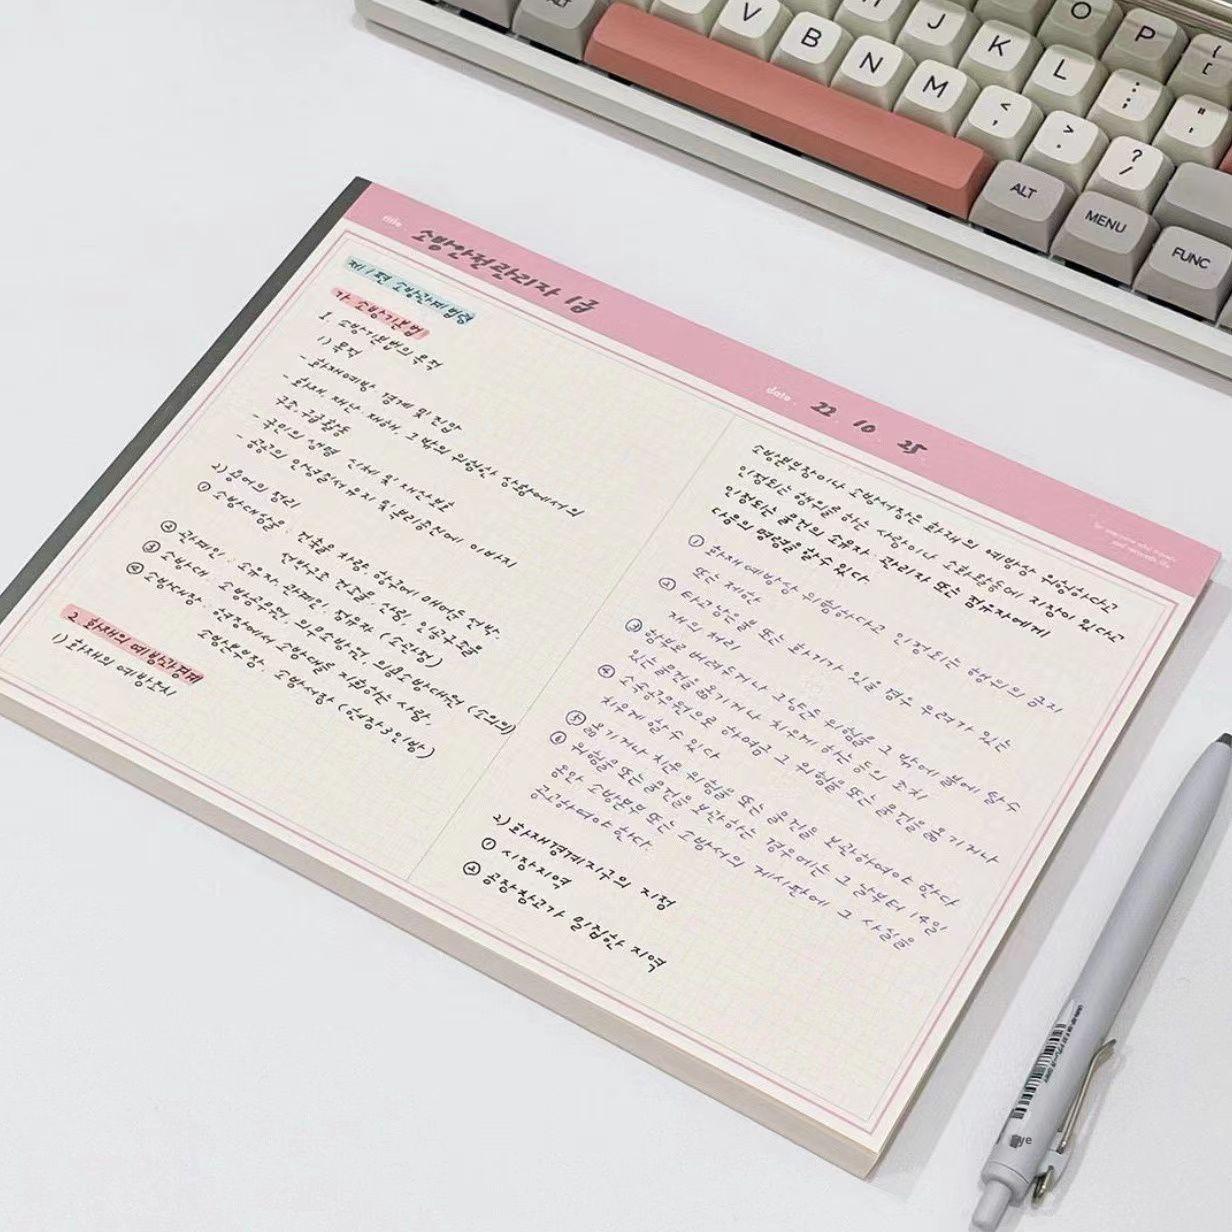 ALT
V
B
N
M
J
K
L
O
P
<
,
>
.
?
/
:
;
"
'
{
[
ALT
MENU
FUNC
title.
소방안전관리자 1급
date.
22. 10. 25
제 1편 소방관계법령
가. 소방기본법
1. 소방기본법의 목적
1) 목적
- 화재예방 경계 및 진압
- 화재, 재난, 재해, 그 밖의 위험한 상황에서의
구조 구급활동
- 국민의 생명 신체 및 재산보호
- 공공의 안녕질서유지 및 복리증진에 이바지
2) 용어의 정리
① 소방대상물 : 건축물, 차량, 항구에 매어둔 선박,
선박건조 건조물, 산림, 인공구조물
② 관계인 : 소유자, 관리인, 점유자 (소관점)
③ 소방대 : 소방공무원, 의무소방원, 의용소방대원 (소의의)
④ 소방대장 : 현장에서 소방대를 지휘하는 사람
소방본부장, 소방서장 (현장3인방)
2. 화재의 예방관경계
1) 화재의 예방조치
소방본부장이나 소방서장은 화재의 예방상 위험하다고
인정되는 행위를 하는 사람이나 소화활동에 지장이 있다고
인정되는 물건의 소유자·관리자 또는 점유자에게
다음의 명령을 할 수 있다
① 화재예방상 위험하다고 인정되는 행위의 금지
또는 제한
② 타고남은 불 또는 화기가 있을 경우 우려가 있는
재의 처리
③ 함부로 버려두거나 그냥둔 위험물 그 밖에 불에 탈 수
있는 물건을 옮기거나 치우게 하는 등의 조치
④ 소속공무원으로 하여금 그 위험물 또는 물건을 옮기거나
치우게 할 수 있다
⑤ 옮기거나 치운 위험물 또는 물건을 보관하여야 한다
⑥ 위험물 또는 물건을 보관하는 경우에는 그 날부터 14일
동안 소방본부 또는 소방서의 게시판에 그 사실을
공고하여야 한다
2) 화재경계지구의 지정
① 시장지역
② 공장창고가 밀집한 지역